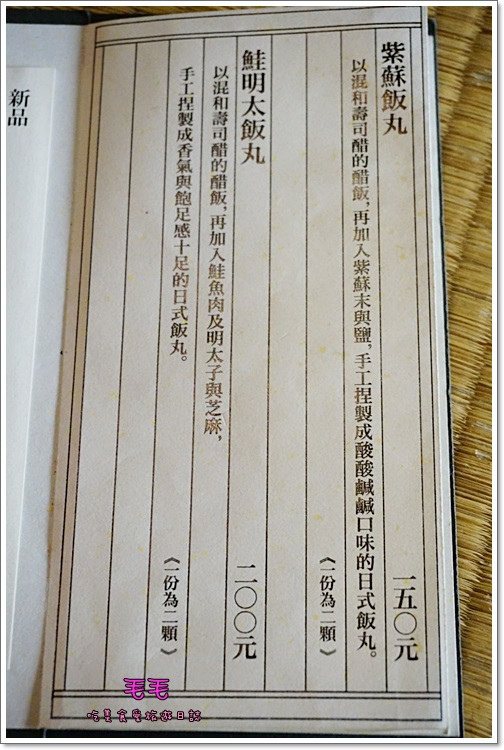 紫蘇飯丸 一五〇元
以混和壽司醋的醋飯，再加入紫蘇末與鹽，手工捏製成酸酸鹹鹹口味的日式飯丸。
《一份為二顆》
鮭明太飯丸 二〇〇元
以混和壽司醋的醋飯，再加入鮭魚肉及明太子與芝麻，
手工捏製成香氣與飽足感十足的日式飯丸。
《一份為二顆》
新品
毛毛
吃美食愛旅遊日誌